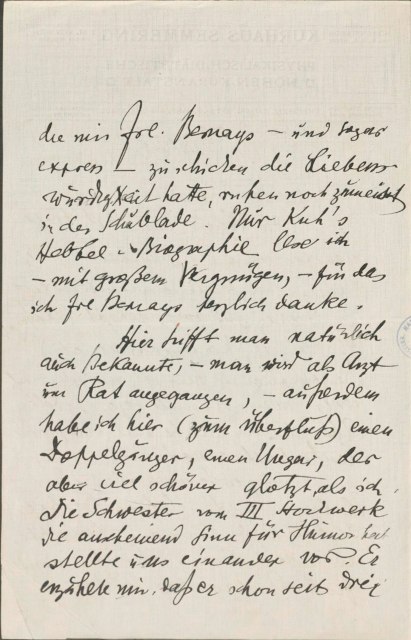 die mir Frl. Bernays – und sogar
express – zu schicken die Liebens-
würdigkeit hatte, ruhen noch zumeist
in der Schublade. Nur Kuh's
Hebbel-Biographie lese ich
– mit großem Vergnügen, – für das
ich Frl Bernays herzlich danke.
Hier trifft man natürlich
auch Bekannte, – man wird als Arzt
um Rat angegangen, – außerdem
habe ich hier (zum Überfluß) einen
Doppelgänger, einen Ungar, der
aber viel schöner glotzt, als ich.
Die Schwester vom III Stockwerk
die anscheinend Sinn für Humor hat
stellte uns einander vor. Er
erzählte mir, daß er schon seit drei